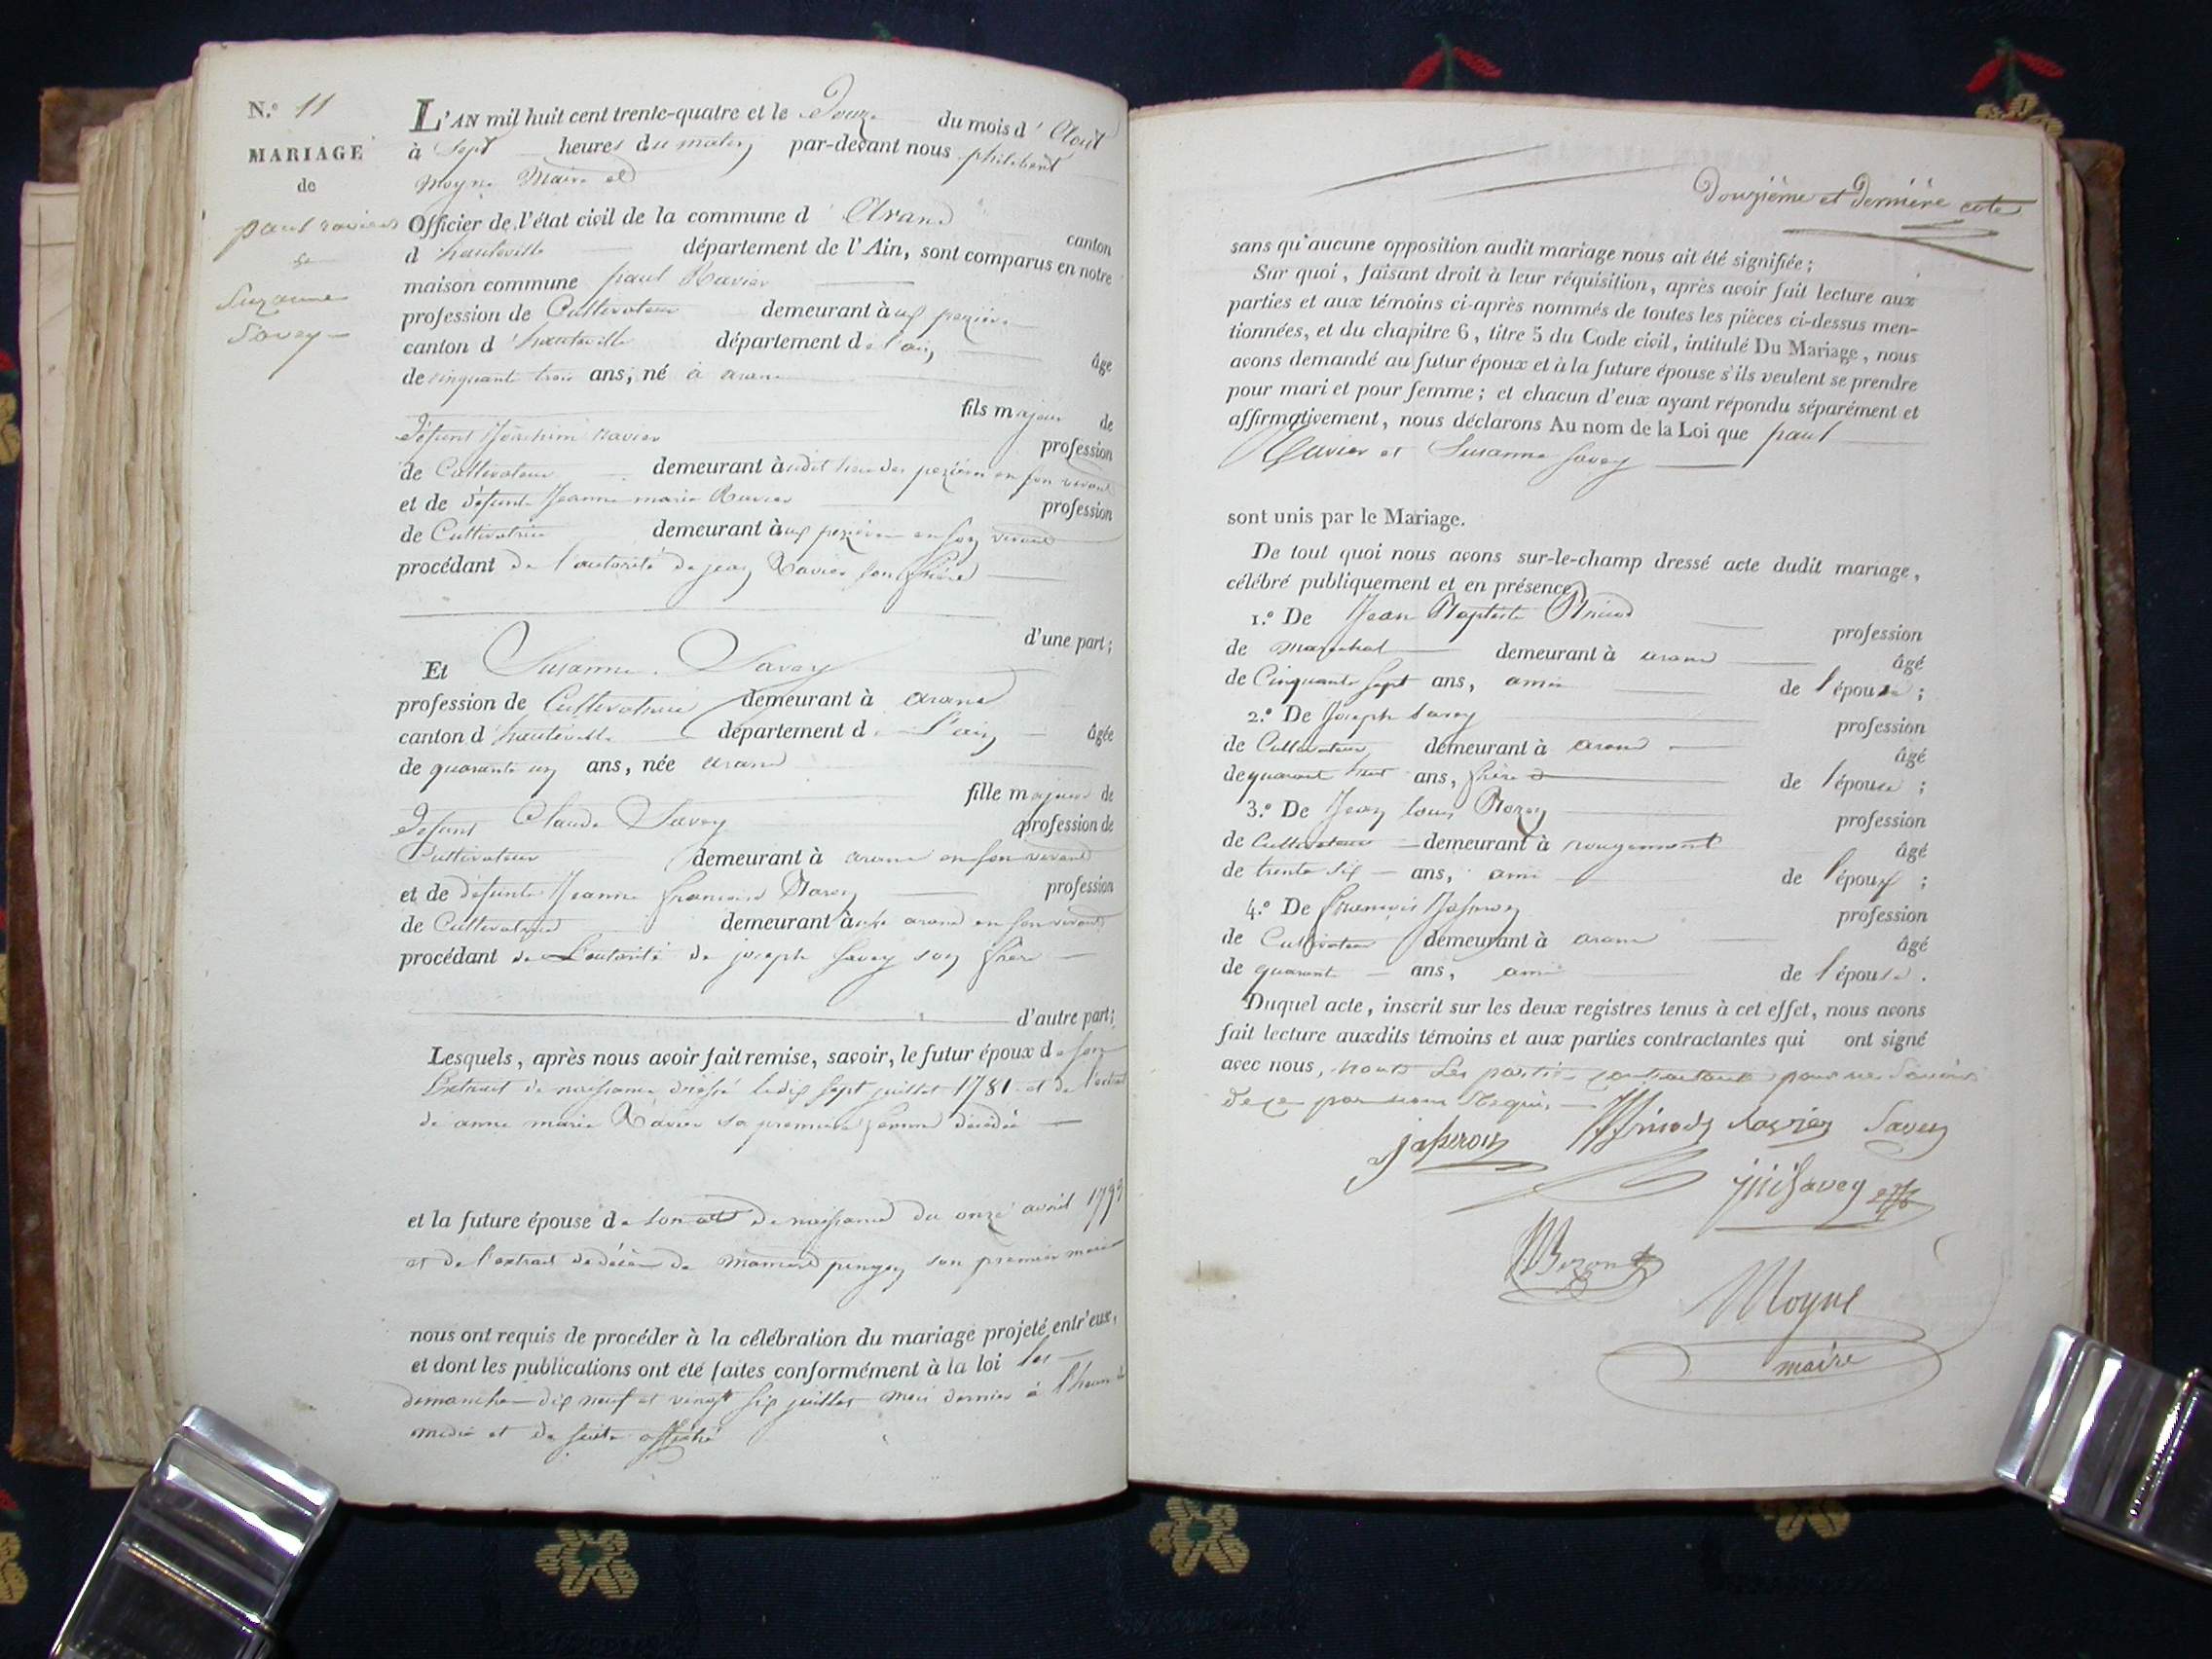 N.º 11
MARIAGE
de
paul ravier
&
Suzanne
Savey
L'AN mil huit cent trente-quatre et le Douze du mois d'Août
à Sept heures du matin par-devant nous philibert
moyne Maire et
Officier de l'état civil de la commune d'Arand canton
d'hauteville département de l'Ain, sont comparus en notre
maison commune paul Ravier
profession de Cultivateur demeurant à aux pezières
canton d'hauteville département de l'ain âgé
de cinquante trois ans, né à arand
fils majeur de
défunt Joachim Ravier profession
de Cultivateur demeurant à udit lieu des pezières en son vivant
et de défunte Jeanne marie Ravier profession
de Cultivatrice demeurant à aux pezières en son vivant
procédant de l'autorité de jean Ravier son frère
d'une part;
Et Susanne Savey
profession de Cultivatrice demeurant à arand
canton d'hauteville département de l'ain âgée
de quarante un ans, née arand
fille majeure de
défunt Claude Savey profession de
Cultivateur demeurant à arand en son vivant
et de défunte Jeanne françoise profession
de Cultivatrice demeurant à arand en son vivant
procédant de L'autorité de joseph Savey son frère
d'autre part;
Lesquels, après nous avoir fait remise, savoir, le futur époux de son
Extrait de naissance dressé le dix sept juillet 1781 et de l'extrait
de anne marie Ravier sa première femme décédée
et la future épouse de son acte de naissance du onze avril 1793
et de l'extrait de décès de mamert pingon son premier mari
nous ont requis de procéder à la célébration du mariage projeté entr'eux,
et dont les publications ont été faites conformément à la loi les
dimanches dix neuf et vingt six juillet mois dernier à l'heure de
midi et de suite affiché
douzième et dernière cote
sans qu'aucune opposition audit mariage nous ait été signifiée;
Sur quoi, faisant droit à leur réquisition, après avoir fait lecture aux
parties et aux témoins ci-après nommés de toutes les pièces ci-dessus men-
tionnées, et du chapitre 6, titre 5 du Code civil, intitulé Du Mariage, nous
avons demandé au futur époux et à la future épouse s'ils veulent se prendre
pour mari et pour femme; et chacun d'eux ayant répondu séparément et
affirmativement, nous déclarons Au nom de la Loi que paul
Ravier et Susanne Savey
sont unis par le Mariage.
De tout quoi nous avons sur-le-champ dressé acte dudit mariage,
célébré publiquement et en présence
1.º De Jean Baptiste profession
de maréchal demeurant à arand âgé
de Cinquante sept ans, ami de l'épouse;
2.º De Joseph Savey profession
de Cultivateur demeurant à arand âgé
de quarante huit ans, frère de l'épouse;
3.º De Jean louis profession
de Cultivateur demeurant à rougemont âgé
de trente six ans, ami de l'époux;
4.º De françois Jasseron profession
de Cultivateur demeurant à arand âgé
de quarante ans, ami de l'épouse.
Duquel acte, inscrit sur les deux registres tenus à cet effet, nous avons
fait lecture auxdits témoins et aux parties contractantes qui ont signé
avec nous, non les parties contractantes pour ne Savoir
de ce par nous Requis
jasseron Ravier Savey
Savey
Moyne
maire